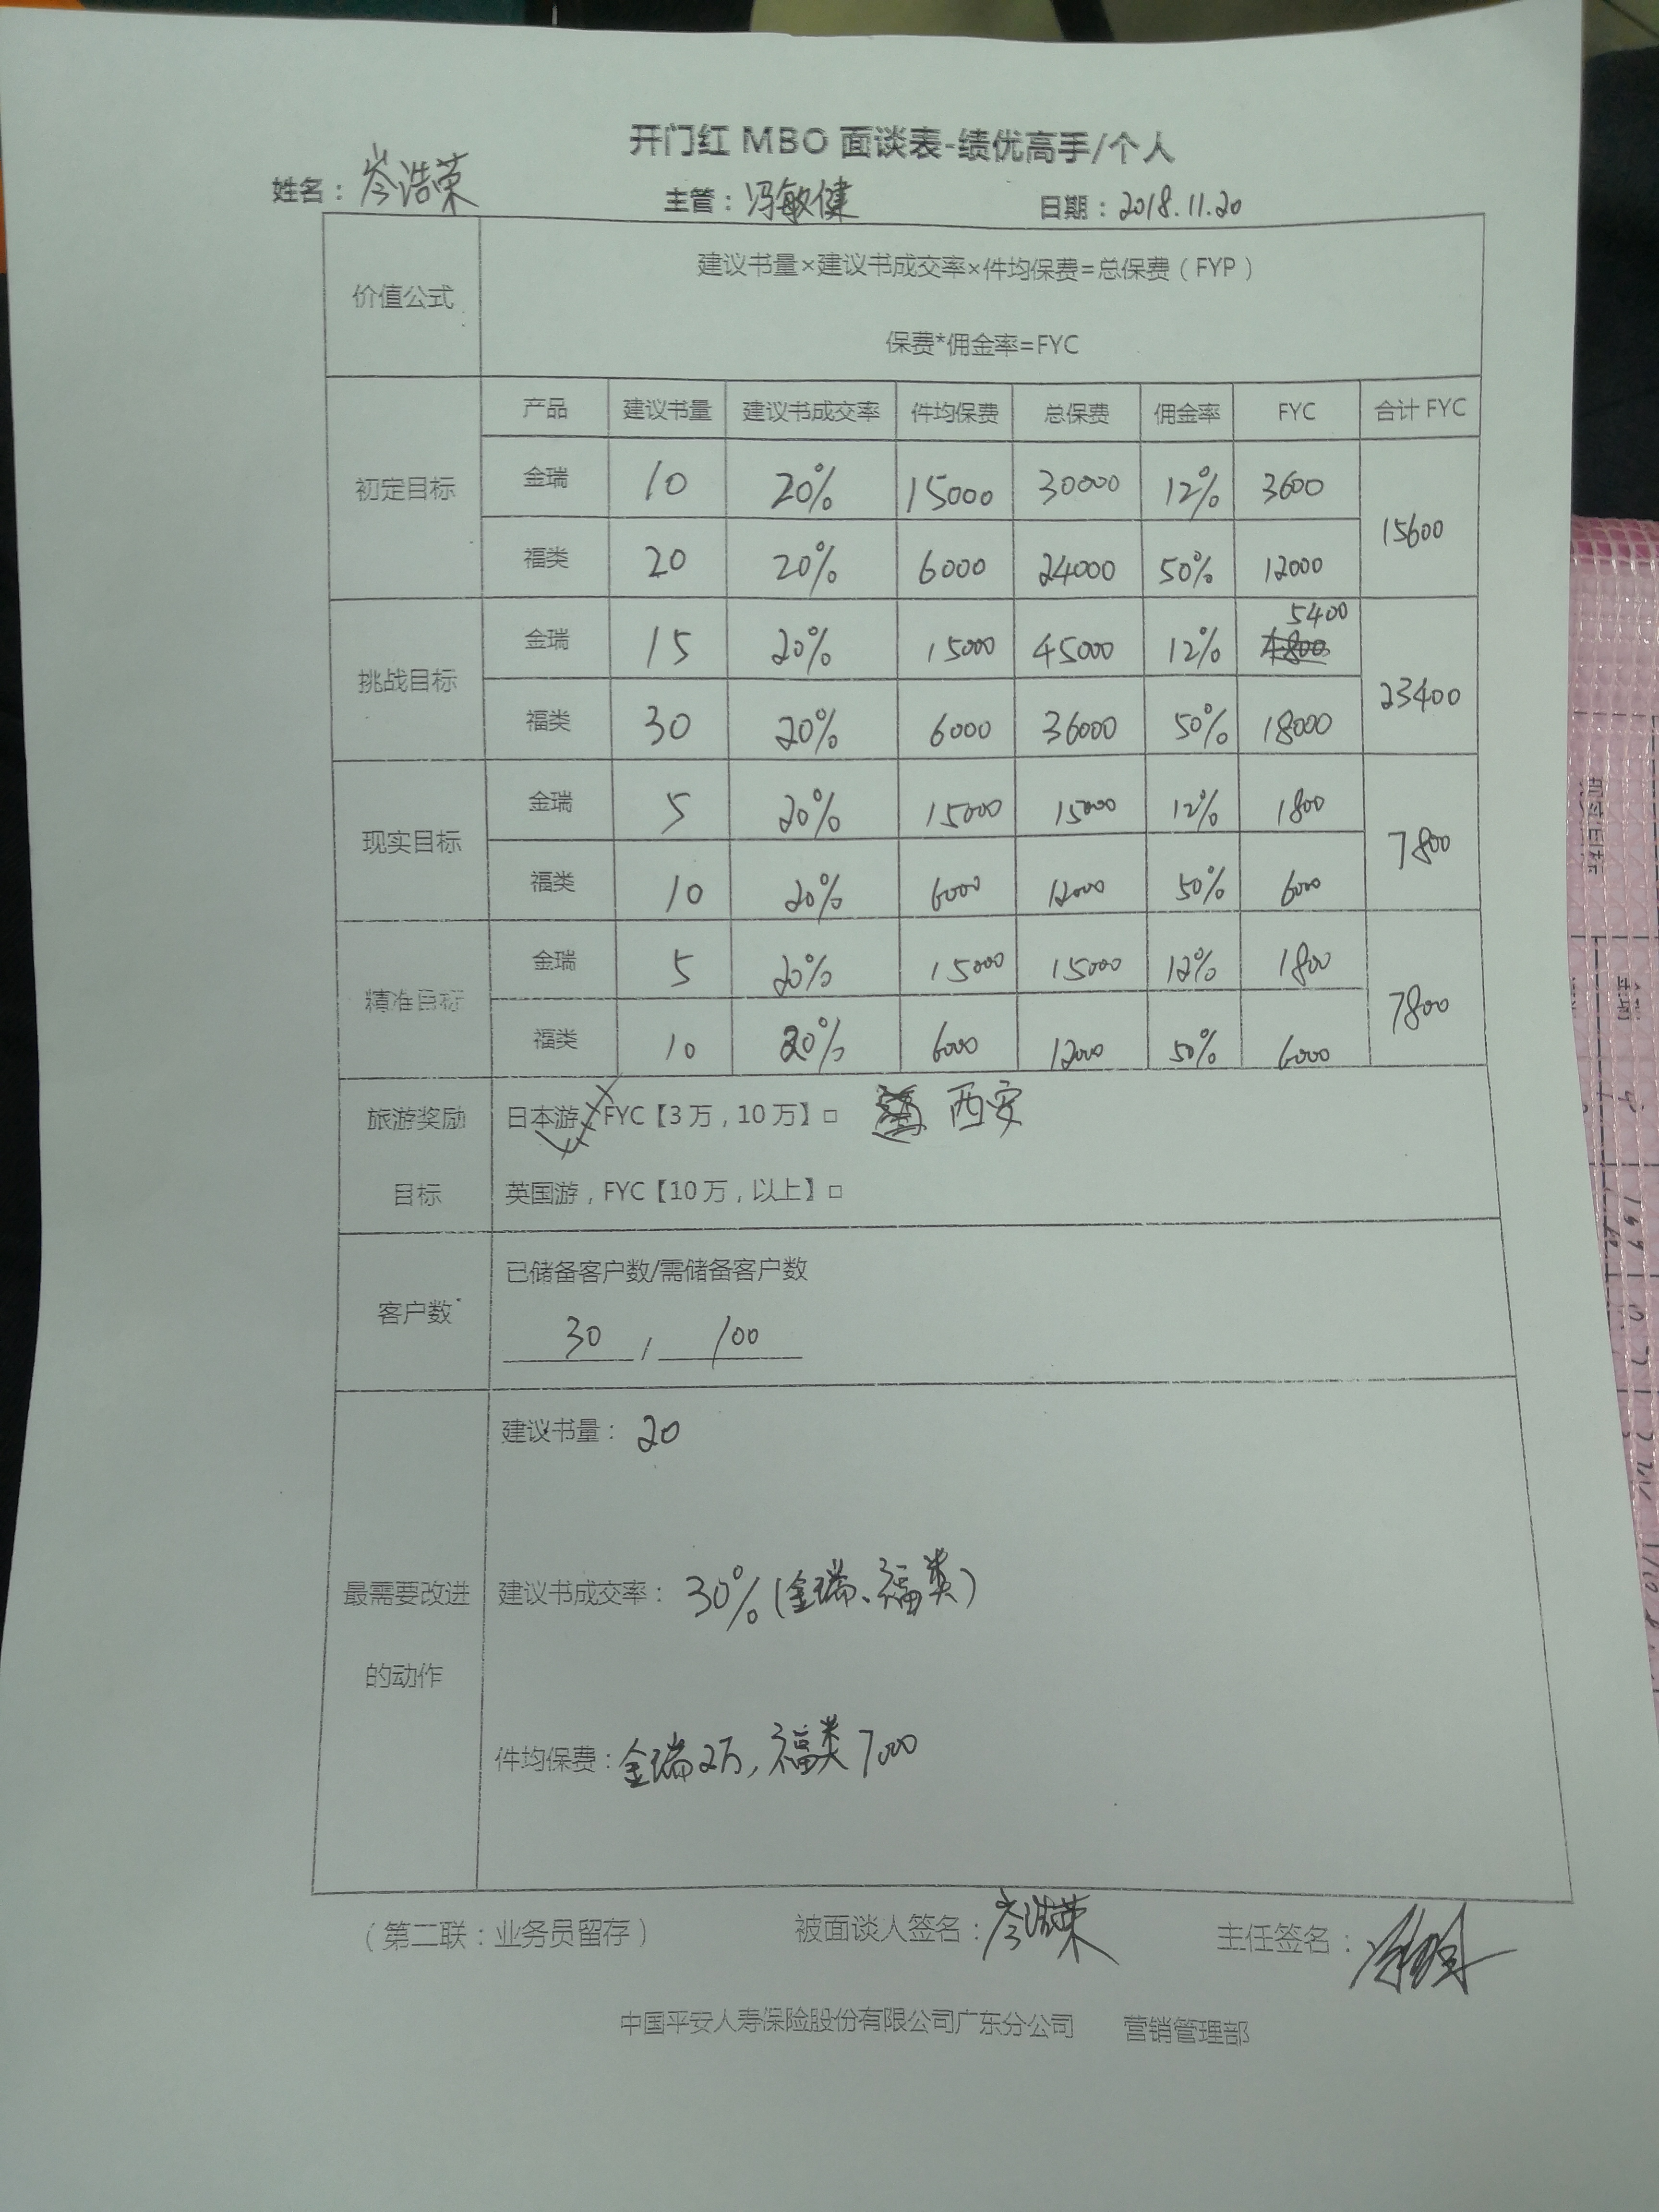 开门红 MBO 面谈表-绩优高手/个人
姓名：岑浩荣 主管：冯敏健 日期：2018.11.20
价值公式
建议书量×建议书成交率×件均保费=总保费（FYP）
保费*佣金率=FYC
产品 建议书量 建议书成交率 件均保费 总保费 佣金率 FYC 合计 FYC
初定目标
金瑞 10 20% 15000 30000 12% 3600
15600
福类 20 20% 6000 24000 50% 12000
挑战目标
金瑞 15 20% 15000 45000 12% 5400
4800
23400
福类 30 20% 6000 36000 50% 18000
现实目标
金瑞 5 20% 15000 15000 12% 1800
7800
福类 10 20% 6000 12000 50% 6000
精准目标
金瑞 5 20% 15000 15000 12% 1800
7800
福类 10 20% 6000 12000 50% 6000
旅游奖励
目标
日本游，FYC【3万，10万】□ 西安
英国游，FYC【10万，以上】□
客户数
已储备客户数/需储备客户数
30 / 100
最需要改进
的动作
建议书量：20
建议书成交率：30%（金瑞、福类）
件均保费：金瑞2万，福类7000
（第二联：业务员留存） 被面谈人签名：岑浩荣 主任签名：
中国平安人寿保险股份有限公司广东分公司 营销管理部